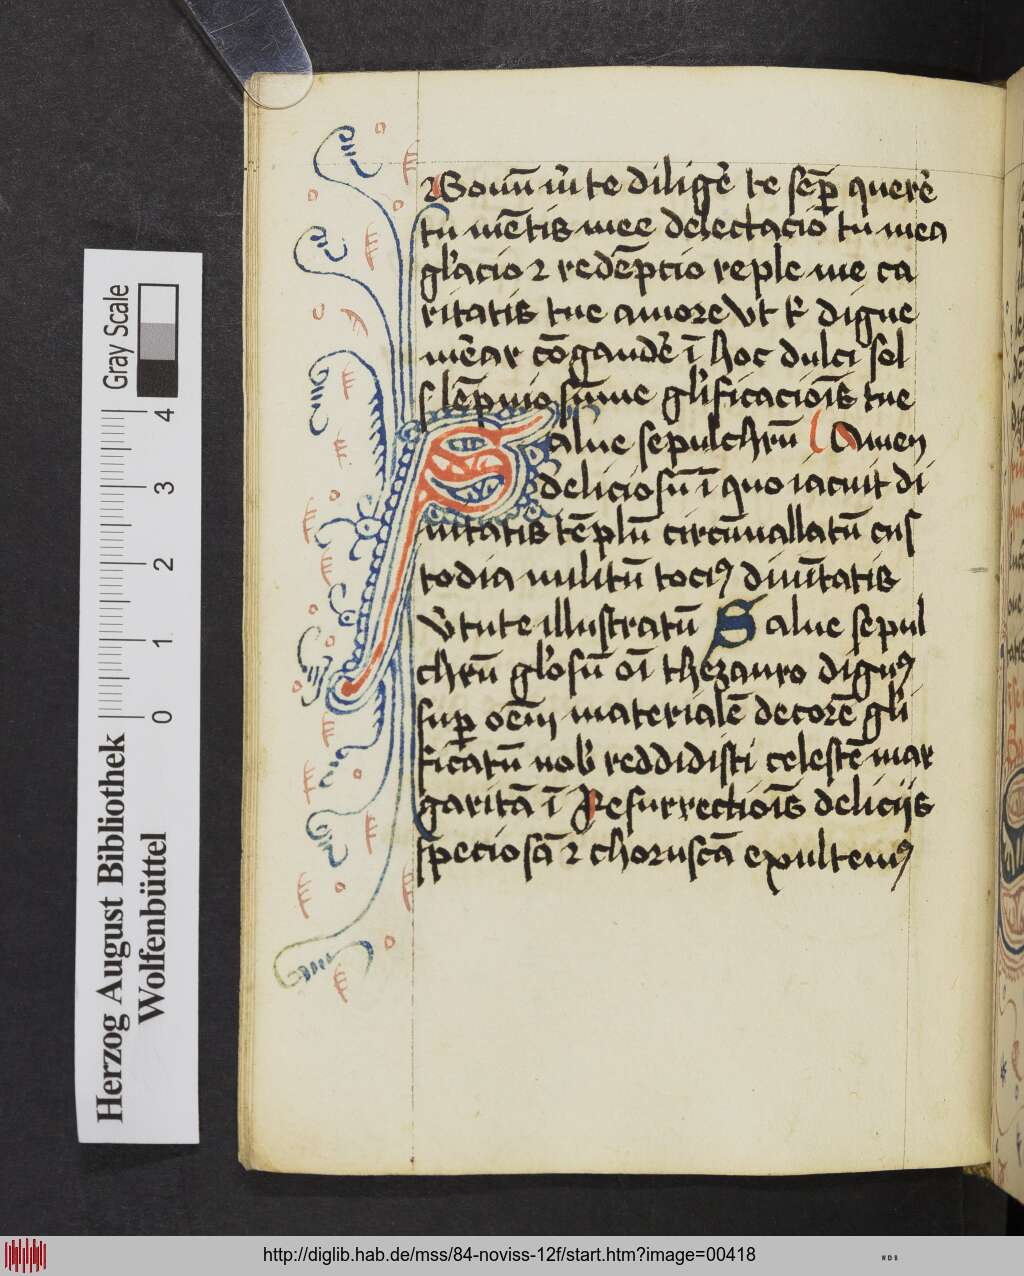 ⁊ Bonū m̄ te diligē te semp̄ querē
tu mētis mee delectacio tu mea
gl'acio ⁊ redēpcio reple me ca
ritatis tue amore vt digne
merear cōgaudē ī hoc dulci sol
lēpnio sūme gl'ificaciōis tue
Salue sepulchrū Amen
deliciosū ī quo iacuit di
uitatis tēplū circūuallatū cus
todia militū tociꝰ diuītatis
v̓tute illustratū Salue sepul
chrū gl'osū oī thezauro dignꝰ
sup̄ oēm materialē decorē gl'i
ficatū nob̓ reddidisti celestē mar
garitā ī Resurrectiōis delicijs
speciosā ⁊ choruscā exultemꝰ
Gray Scale
4
3
2
1
0
Herzog August Bibliothek
Wolfenbüttel
http://diglib.hab.de/mss/84-noviss-12f/start.htm?image=00418